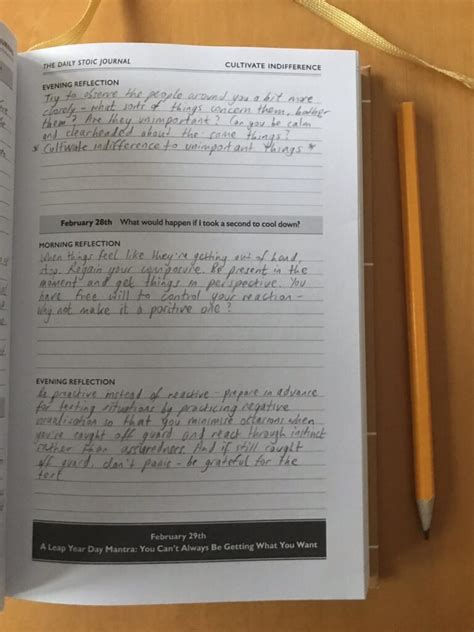 THE DAILY STOIC JOURNAL CULTIVATE INDIFFERENCE
EVENING REFLECTION
Try to observe the people around you a bit more
closely - what sort of things concern them, bother
them? Are they unimportant? Can you be calm
and clearheaded about the same things?
* Cultivate indifference to unimportant things *
February 28th What would happen if I took a second to cool down?
MORNING REFLECTION
When things feel like they're getting out of hand,
stop. Regain your composure. Be present in the
moment and get things in perspective. You
have free will to control your reaction -
why not make it a positive one?
EVENING REFLECTION
Be proactive instead of reactive - prepare in advance
for testing situations by practicing negative
visualisation so that you minimise occasions when
you're caught off guard and react through instinct
rather than And if still caught
off guard, don't panic - be grateful for the
test.
February 29th
A Leap Year Day Mantra: You Can't Always Be Getting What You Want